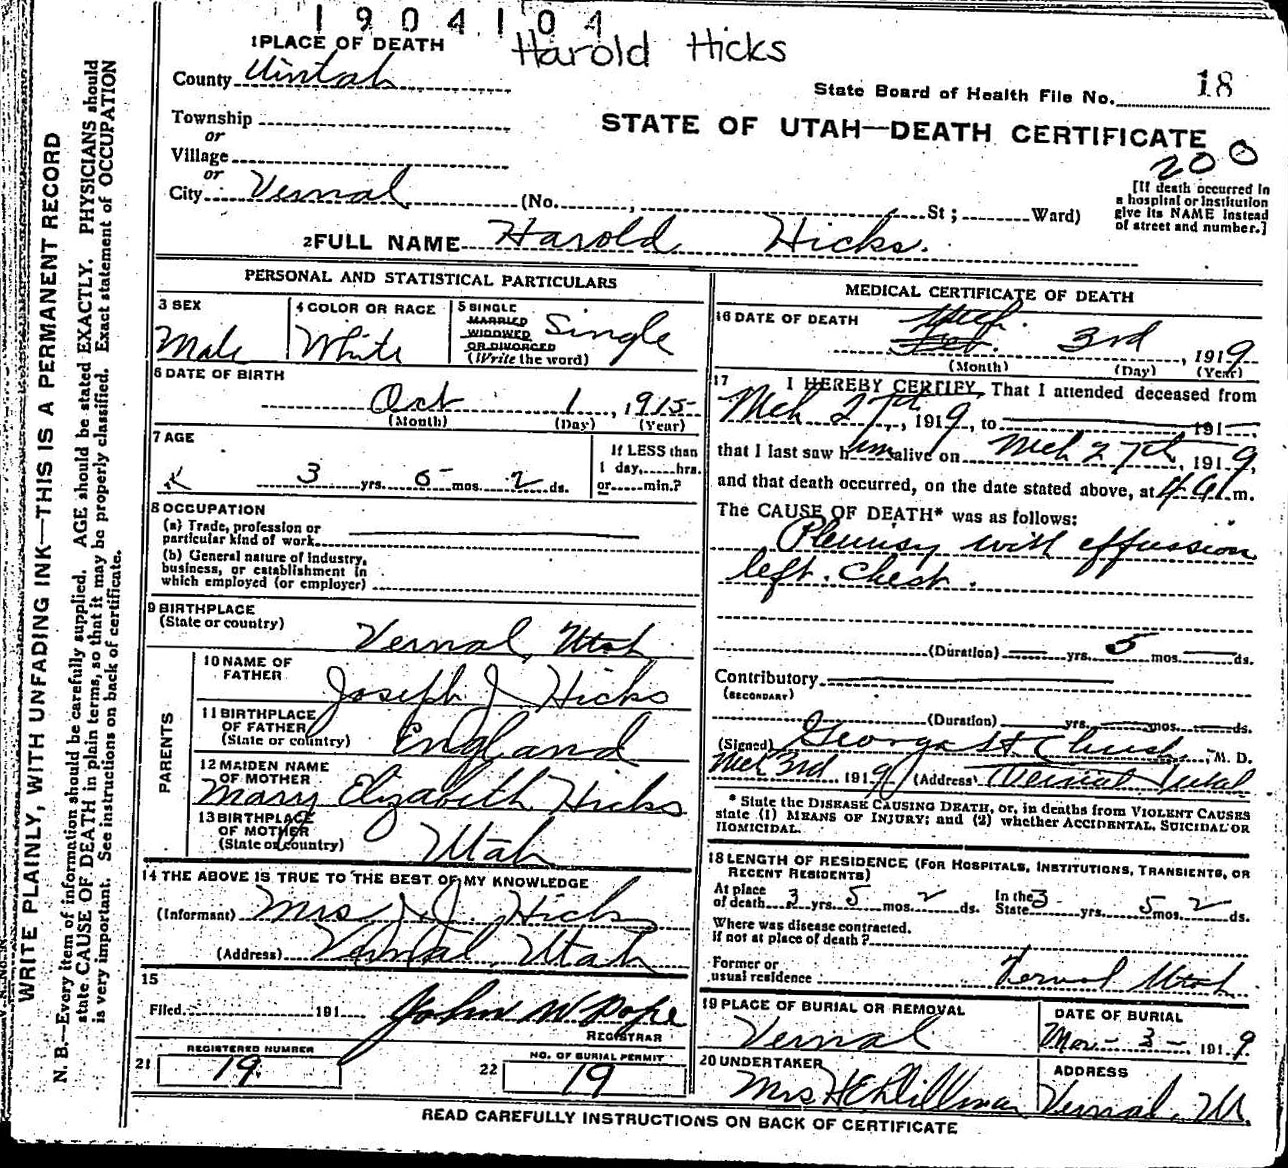 1904104
Harold Hicks
1 PLACE OF DEATH
County Uintah
State Board of Health File No. 18
Township
or
Village
or
City Vernal (No. , St ; Ward)
STATE OF UTAH—DEATH CERTIFICATE
200
[If death occurred in
a hospital or institution
give its NAME instead
of street and number.]
2 FULL NAME Harold Hicks.
PERSONAL AND STATISTICAL PARTICULARS
3 SEX
Male
4 COLOR OR RACE
White
5 SINGLE
MARRIED
WIDOWED
OR DIVORCED
(Write the word)
Single
6 DATE OF BIRTH
Oct 1, 1915
(Month) (Day) (Year)
7 AGE
3 yrs. 5 mos. 2 ds.
If LESS than
1 day, hrs.
or min.?
8 OCCUPATION
(a) Trade, profession or
particular kind of work
(b) General nature of industry,
business, or establishment in
which employed (or employer)
9 BIRTHPLACE
(State or country)
Vernal, Utah
PARENTS
10 NAME OF
FATHER
Joseph J Hicks
11 BIRTHPLACE
OF FATHER
(State or country)
England
12 MAIDEN NAME
OF MOTHER
Mary Elizabeth Hicks
13 BIRTHPLACE
OF MOTHER
(State or country)
Utah
14 THE ABOVE IS TRUE TO THE BEST OF MY KNOWLEDGE
(Informant) Mrs J. J. Hicks
(Address) Vernal, Utah
15
Filed 191 John W Pope
REGISTRAR
21 REGISTERED NUMBER
19
22 NO. OF BURIAL PERMIT
19
MEDICAL CERTIFICATE OF DEATH
16 DATE OF DEATH
Mch. Feb. 3rd, 1919
(Month) (Day) (Year)
17 I HEREBY CERTIFY, That I attended deceased from
Mch 27th, 1919, to 191
that I last saw him alive on Mch 27th, 1919,
and that death occurred, on the date stated above, at 4 a.m.
The CAUSE OF DEATH* was as follows:
Pleurisy with effussion
left. Chest.
(Duration) yrs. 5 mos. ds.
Contributory
(SECONDARY)
(Duration) yrs. mos. ds.
(Signed) George H , M. D.
Mch 3rd 1919 (Address) Vernal Utah
* State the DISEASE CAUSING DEATH, or, in deaths from VIOLENT CAUSES
state (1) MEANS OF INJURY; and (2) whether ACCIDENTAL, SUICIDAL OR
HOMICIDAL.
18 LENGTH OF RESIDENCE (FOR HOSPITALS, INSTITUTIONS, TRANSIENTS, OR
RECENT RESIDENTS)
At place
of death 3 yrs. 5 mos. 2 ds. In the
State 3 yrs. 5 mos. 2 ds.
Where was disease contracted.
if not at place of death?
Former or
usual residence Vernal Utah
19 PLACE OF BURIAL OR REMOVAL
Vernal
DATE OF BURIAL
Mar. - 3 -, 1919
20 UNDERTAKER
Mrs H E Dillman
ADDRESS
Vernal, Ut.
READ CAREFULLY INSTRUCTIONS ON BACK OF CERTIFICATE
WRITE PLAINLY, WITH UNFADING INK—THIS IS A PERMANENT RECORD
N. B.—Every item of information should be carefully supplied. AGE should be stated EXACTLY. PHYSICIANS should
state CAUSE OF DEATH in plain terms, so that it may be properly classified. Exact statement of OCCUPATION
is very important. See instructions on back of certificate.